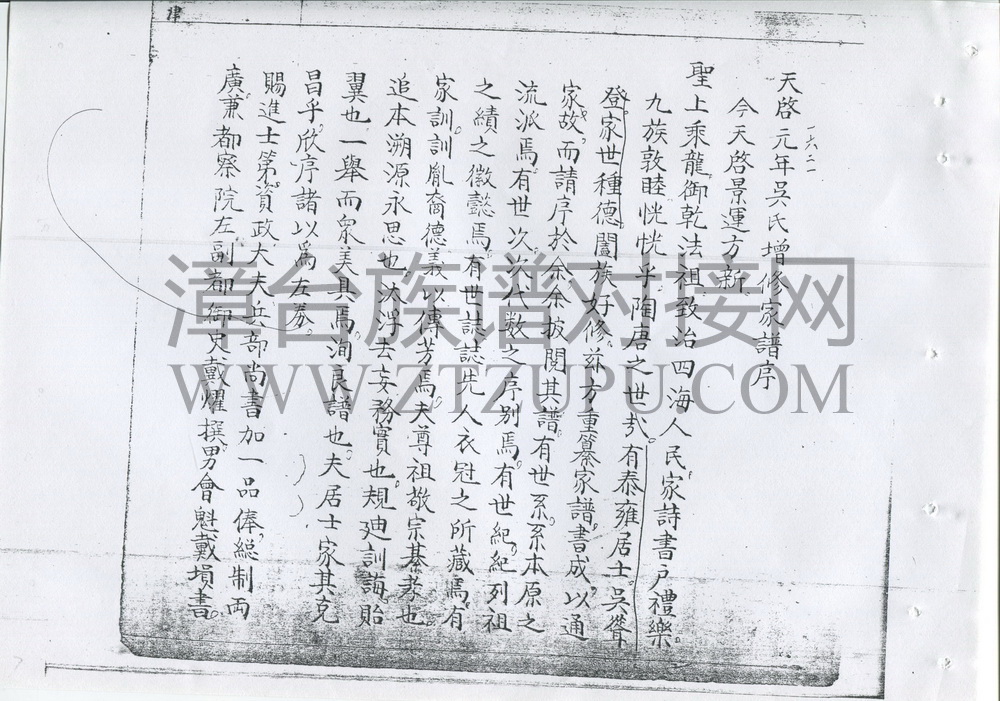 律
天啓元年吳氏增修家譜序
一六二一
今天啓景運方新
聖上乘龍御乾法祖致治四海人民家詩書戶禮樂。
九族敦睦恍恍乎陶唐之世哉。有泰雍居士吳
登家世種德闔族好修茲方重纂家譜書成以通
家故而請序於余余披閱其譜有世系系本原之
流派焉有世次次代數之序別焉有世紀紀列祖
之績之徽懿焉有世誌誌先人衣冠之所藏焉有
家訓訓胤裔德義以傳芳焉夫尊祖敬宗基孝也
追本溯源永思也汰浮去妄務實也規迪訓誨貽
翼也一舉而眾美具焉洵良譜也夫居士家其克
昌乎欣序諸以為左券。
賜進士第資政大夫兵部尚書加一品俸總制両
廣兼都察院左副都御史戴燿撰男會魁戴塤書
漳台族谱对接网
WWW.ZTZUPU.COM